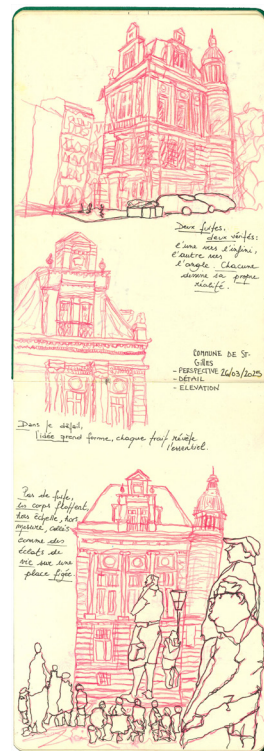 Deux fuites,
deux vérités:
l'une vers l'infini,
l'autre vers
l'angle. Chacune
donne sa propre
réalité.
COMMUNE DE ST-
GILLES
- PERSPECTIVE 26/03/2025
- DÉTAIL
- ELEVATION
Dans le détail,
l'idée prend forme, chaque trait révèle
l'essentiel.
Pas de fuite,
les corps flottent,
hors échelle, hors
mesure, collés
comme des
éclats de
vie sur une
place figée.